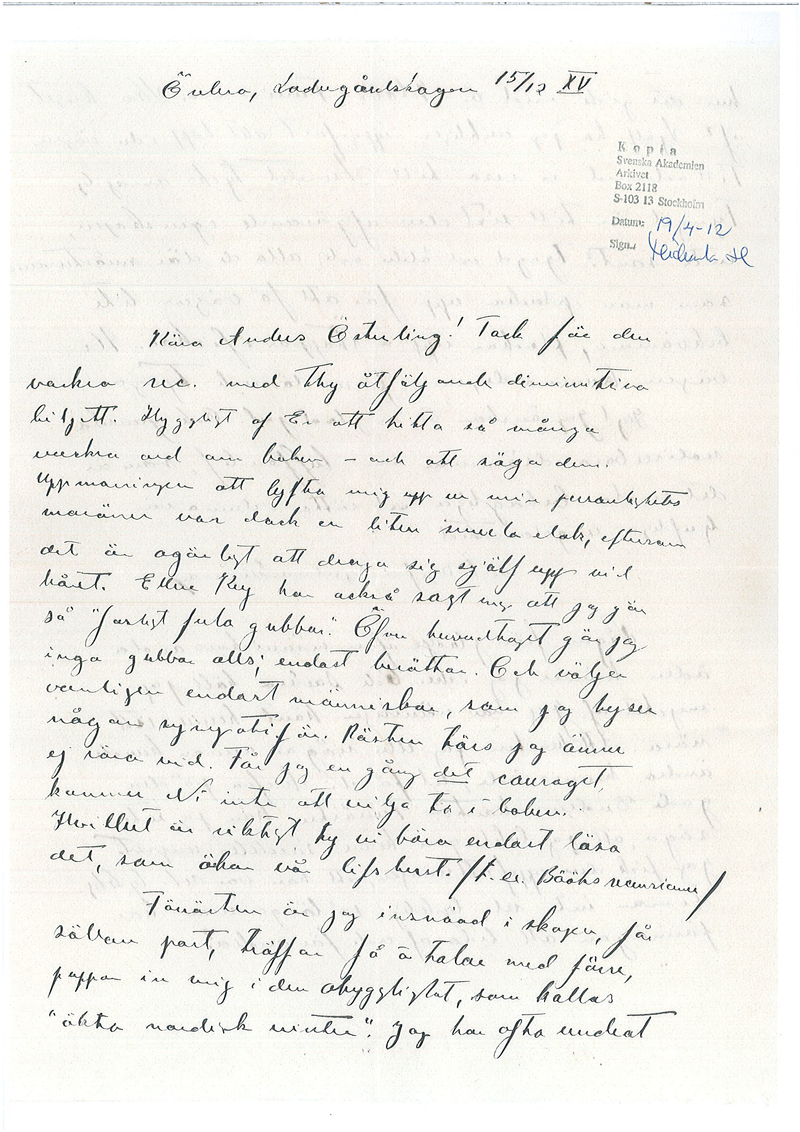 Örebro, Ladugårdskogen 15/12 XV
Kopia
Svenska Akademien
Arkivet
Box 2118
S-103 13 Stockholm
Datum: 19/4-12
Sign.:
Kära Anders Österling! Tack för den
vackra rec. med thy åtföljande diminutiva
biljett. Hyggligt af Er att hitta så många
vackra ord om boken – och att säga dem.
Uppmaningen att lyfta mig upp ur min personlighets
moräner var dock en liten smula elak, eftersom
det är ogörligt att draga sig sjelf upp vid
håret. Ellen Key har också sagt mig att jag gör
så "farligt fula gubbar". Öfver hufvudtaget gör jag
inga gubbar alls; endast berättar. Och väljer
vanligen endast människor, som jag hyser
någon sympati för. Resten törs jag ännu
ej röra vid. Får jag en gång det couraget,
kommer Ni inte att vilja ta i boken.
Hvilket är riktigt ty vi böra endast läsa
det, som ökar vår lifslust. /t. ex. Bööks recensioner/
Förresten är jag insnöad i skogen, får
sällan post, träffar få å talar med färre,
pappar in mig i den ohygglighet, som kallas
"äkta nordisk vinter". Jag har ofta undrat